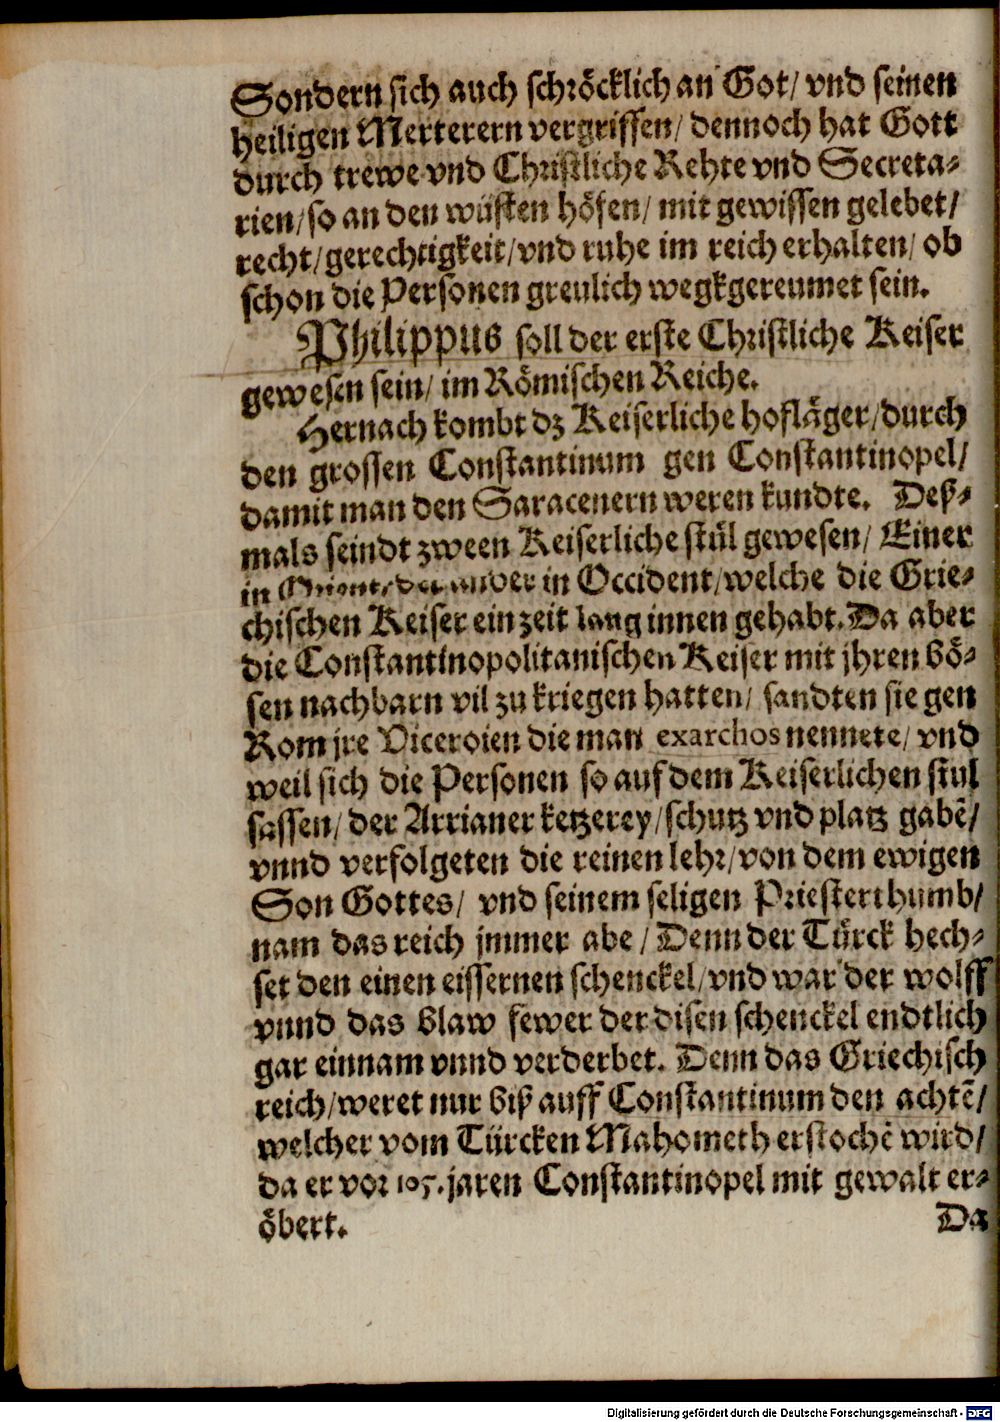 Sondern sich auch schröcklich an Got/ vnd seinen
heiligen Merterern vergriffen/ dennoch hat Gott
durch trewe vnd Christliche Rehte vnd Secreta-
rien/ so an den wüsten höfen/ mit gewissen gelebet/
recht/ gerechtigkeit/ vnd ruhe im reich erhalten/ ob
schon die Personen greulich wegkgereumet sein.
Philippus soll der erste Christliche Keiser
gewesen sein/ im Römischen Reiche.
Hernach kombt dz Keiserliche hofläger/ durch
den grossen Constantinum gen Constantinopel/
damit man den Saracenern weren kundte. Deß-
mals seindt zween Keiserliche stül gewesen/ Einer
in Orient/ der ander in Occident/ welche die Grie-
chischen Keiser ein zeit lang innen gehabt. Da aber
die Constantinopolitanischen Keiser mit jhren bö-
sen nachbarn vil zu kriegen hatten/ sandten sie gen
Rom jre Viceroien die man exarchos nennete/ vnd
weil sich die Personen so auf dem Keiserlichen stul
sassen/ der Arrianer ketzerey/ schutz vnd platz gabẽ/
vnnd verfolgeten die reinen lehr/ von dem ewigen
Son Gottes/ vnd seinem seligen Priesterthumb/
nam das reich jmmer abe/ Denn der Türck hech-
set den einen eissernen schenckel/ vnd war der wolff
vnnd das blaw fewer der disen schenckel endtlich
gar einnam vnnd verderbet. Denn das Griechisch
reich/ weret nur biß auff Constantinum den achtẽ/
welcher vom Türcken Mahometh erstochẽ wird/
da er vor 105. jaren Constantinopel mit gewalt er-
öbert.
Da
Digitalisierung gefördert durch die Deutsche Forschungsgemeinschaft - DFG